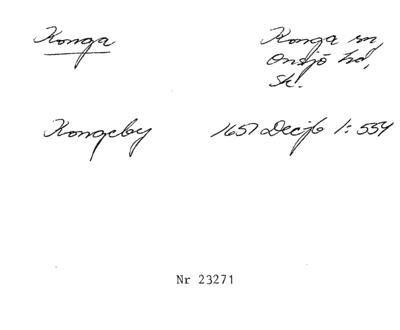 Konga
Konga sn,
Onsjö hd,
Sk.
Kongeby 1657 Decjb 1: 554
Nr 23271